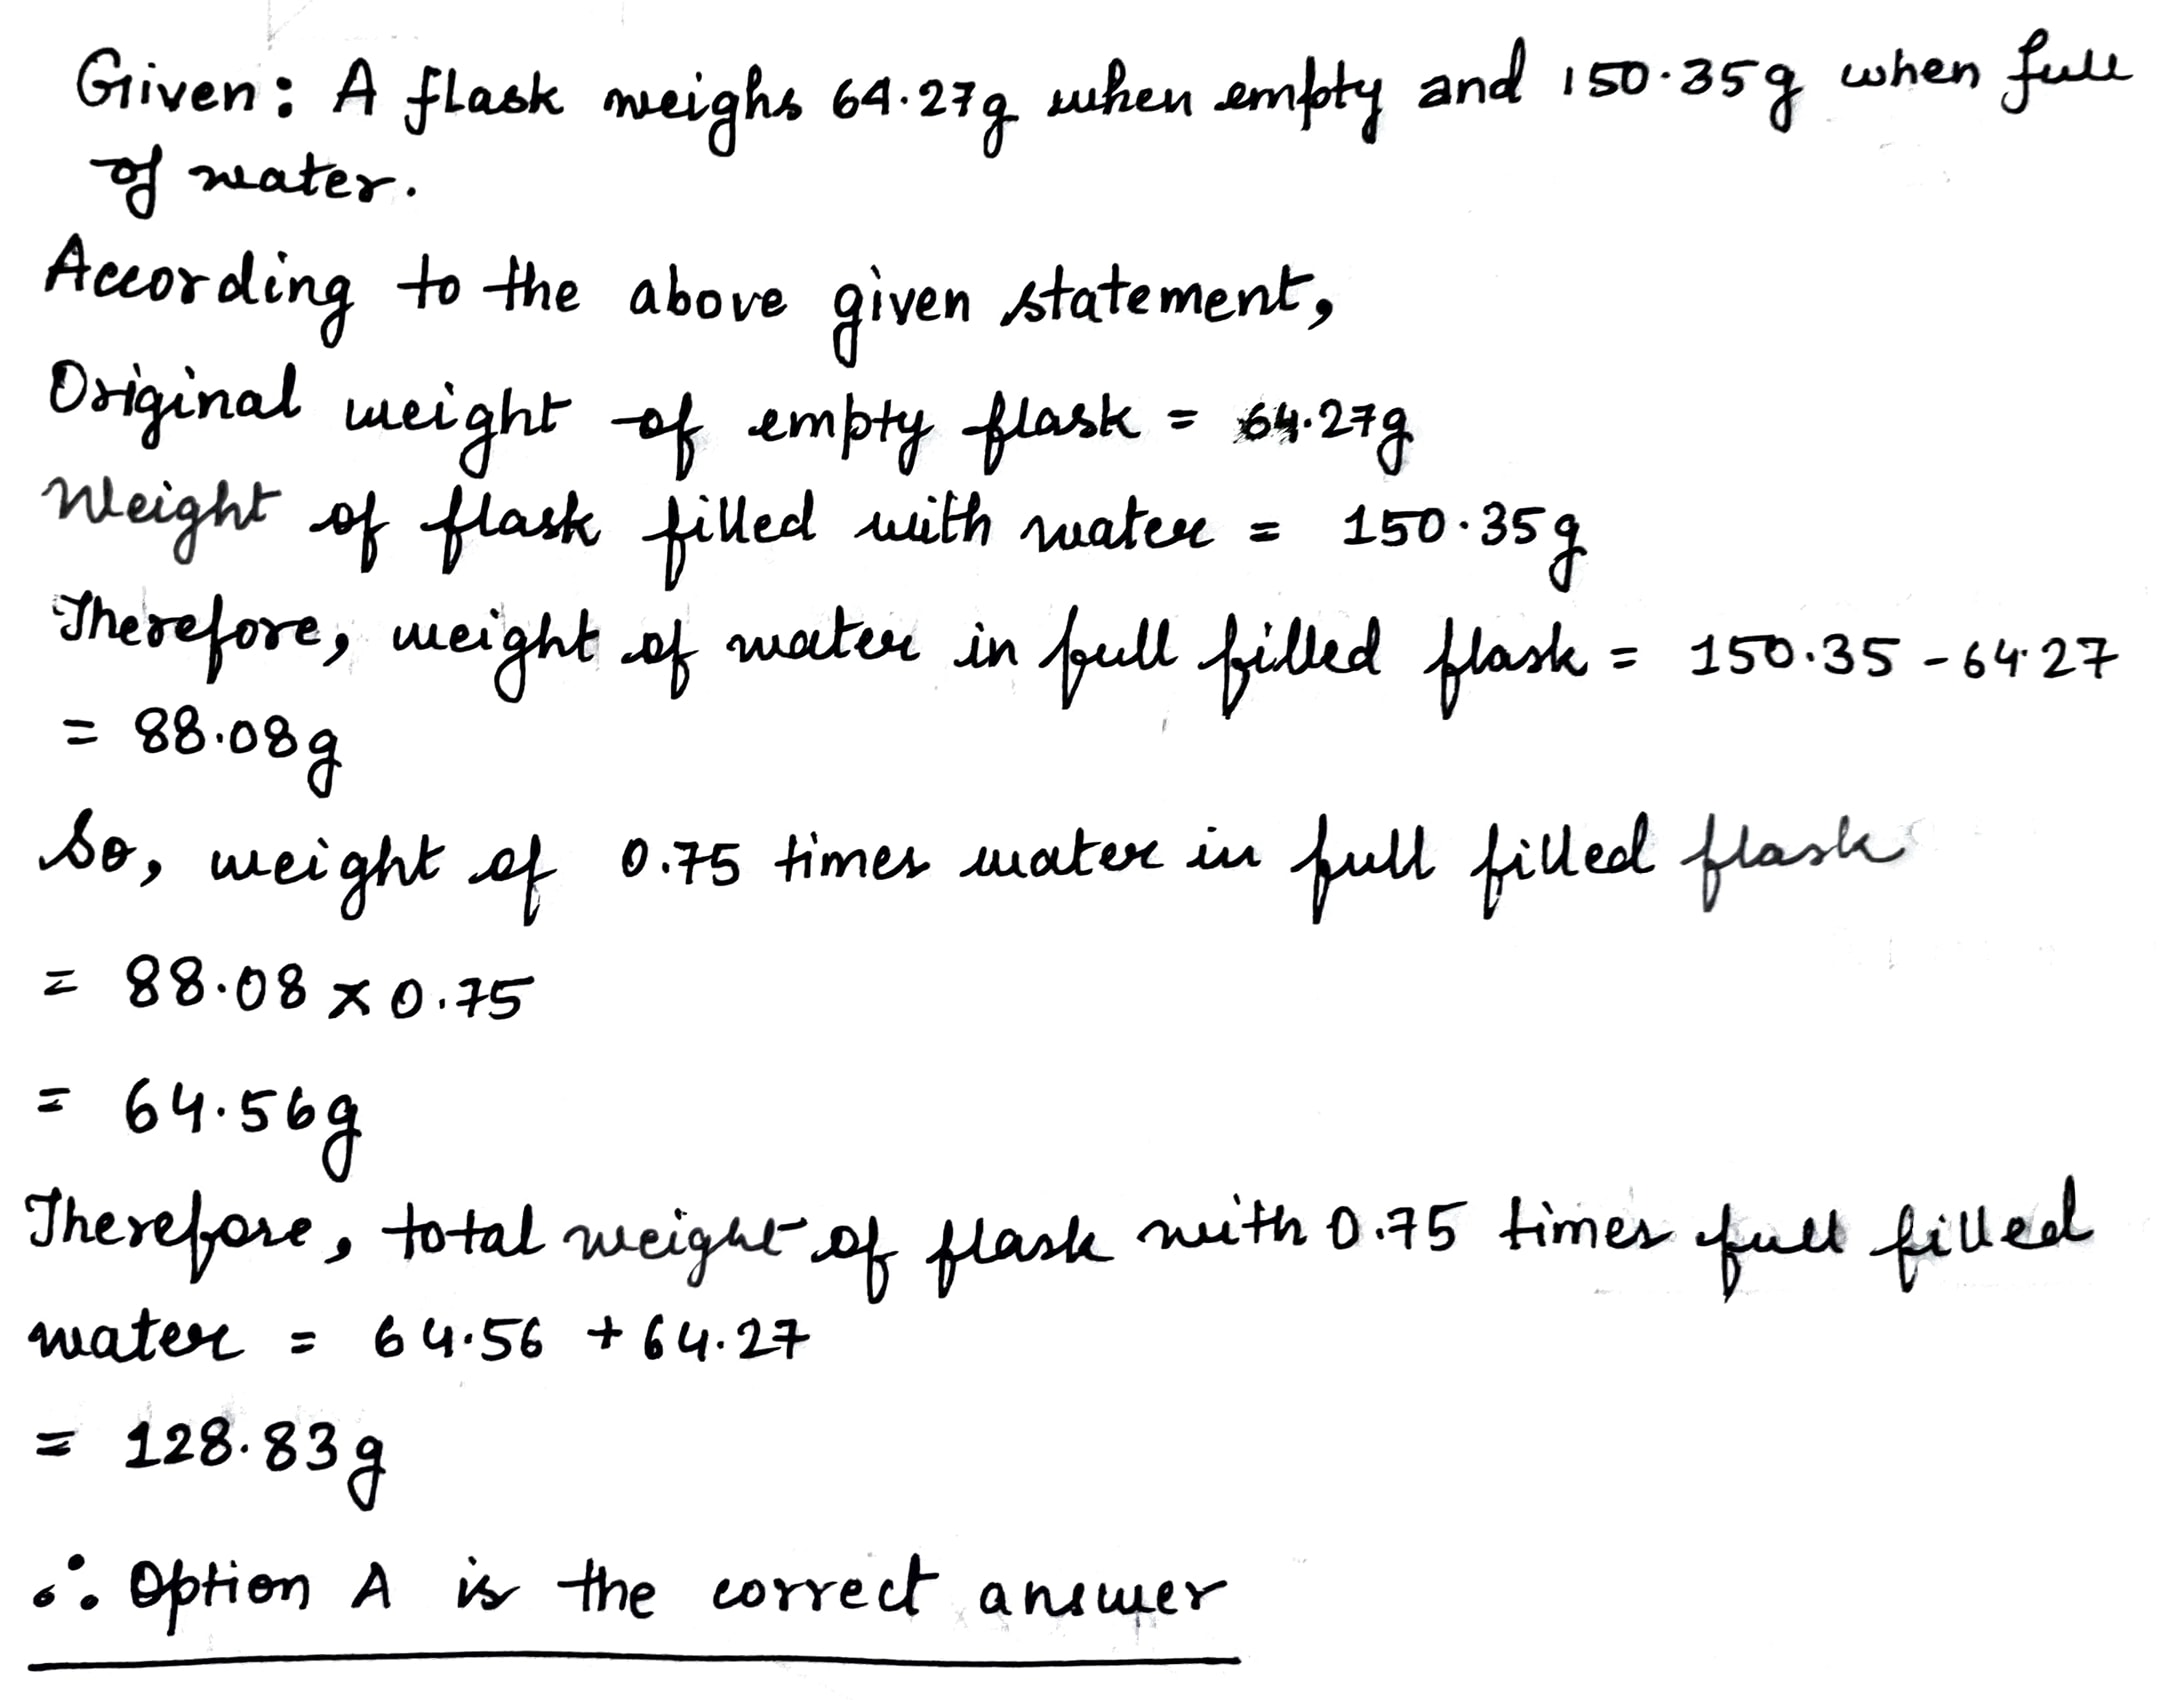 Given: A flask weighs 64.27g when empty and 150.35g when full
of water.
According to the above given statement,
Original weight of empty flask = 64.27g
Weight of flask filled with water = 150.35g
Therefore, weight of water in full filled flask = 150.35 - 64.27
= 88.08g
So, weight of 0.75 times water in full filled flask
= 88.08 x 0.75
= 64.56g
Therefore, total weight of flask with 0.75 times full filled
water = 64.56 + 64.27
= 128.83g
∴ Option A is the correct answer